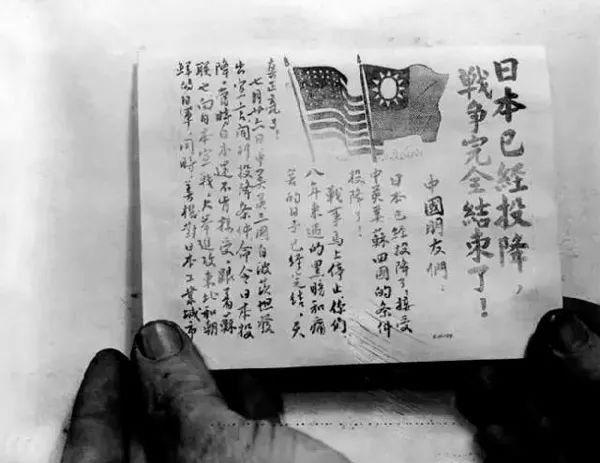 日本已經投降，
戰爭完全結束了！
中國朋友們：
日本已經投降了，接受
中英美蘇四國的条件
投降了！
戰事馬上停止，你們
八年來過的黑暗和痛
苦的日子已經完結，天
真正亮了！
七月廿六日中美英三國自波茨坦發
出宣言，開列投降条件命令日本投
降，當時日本還不肯接受，跟着蘇
联也向日本宣戰，大举進攻東北和朝
鮮的日軍，同時美機對日本工業城市